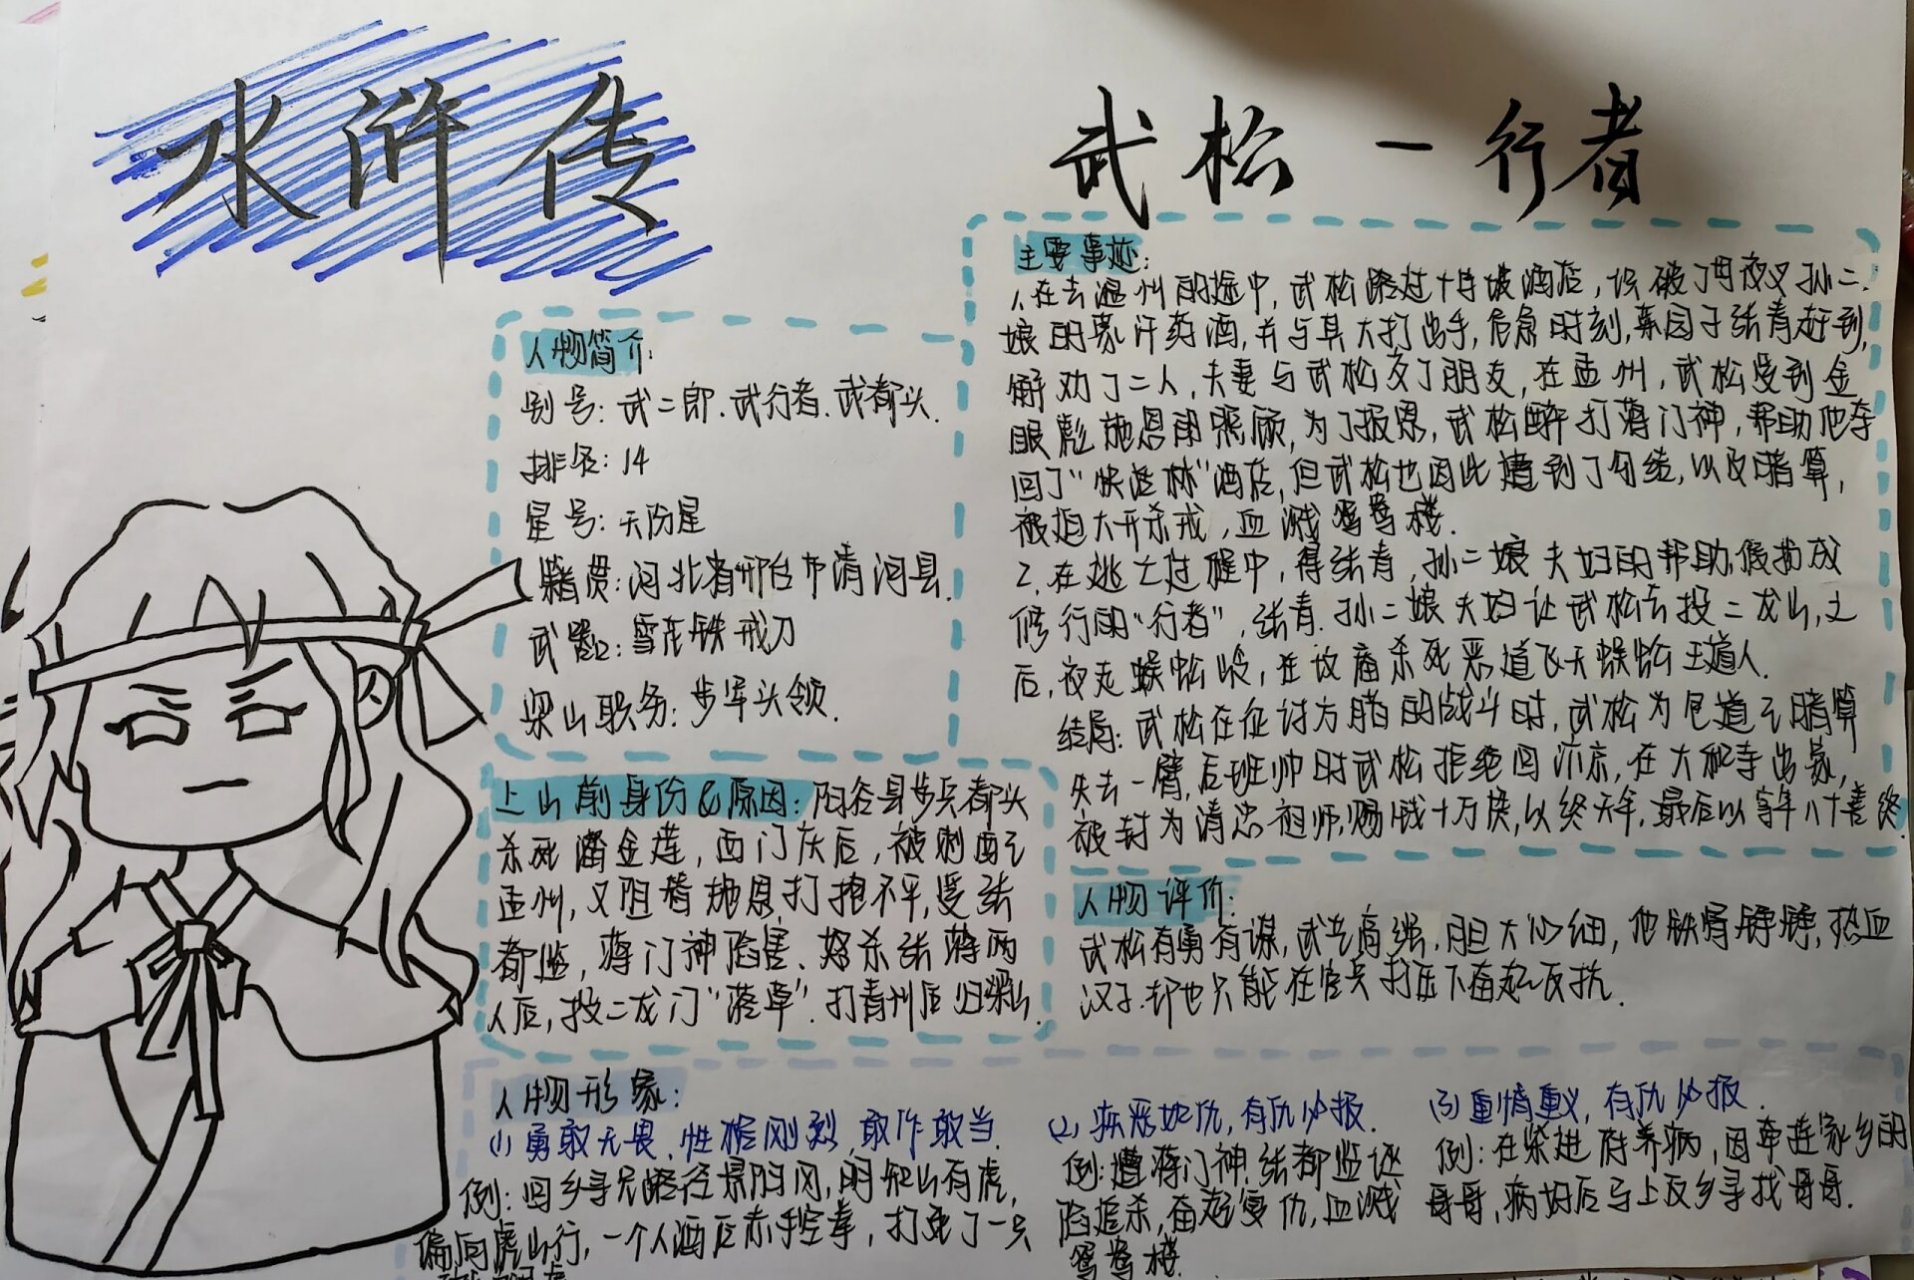 水浒传
武松一行者
人物简介:
别号: 武二郎.武行者.武都头.
排名: 14
星号: 天伤星
籍贯: 河北省邢台市清河县.
武器: 雪花镔铁戒刀
梁山职务: 步军头领.
上山前身份&原因: 阳谷县步兵都头
杀死潘金莲, 西门庆后, 被刺配至
孟州, 又因替施恩打抱不平, 受张
都监, 蒋门神陷害. 怒杀张蒋两
人后, 投二龙门"落草". 打青州后归梁山.
主要事迹:
1.在去孟州的途中, 武松路过十字坡酒店, 识破了母夜叉孙二
娘的蒙汗药酒, 并与其大打出手, 危急时刻, 菜园子张青赶到,
解劝了二人, 夫妻与武松交了朋友, 在孟州, 武松受到金
眼彪施恩的照顾, 为了报恩, 武松醉打蒋门神, 帮助他夺
回了"快活林"酒店, 但武松也因此遭到了勾结, 以及暗算,
被迫大开杀戒, 血溅鸳鸯楼.
2.在逃亡过程中, 得张青, 孙二娘夫妇的帮助, 假扮成
修行的"行者", 张青.孙二娘夫妇让武松去投二龙山, 之
后, 夜走蜈蚣岭, 在坟庙杀死恶道飞天蜈蚣王道人.
结局: 武松在征讨方腊的战斗时, 武松为包道乙暗算
失去一臂, 后班师时武松拒绝回汴京, 在六和寺出家,
被封为清忠祖师, 赐钱十万块, 以终天年, 最后以享年八十善终
人物评价:
武松有勇有谋, 武艺高强, 胆大心细, 他铁骨铮铮, 热血
汉子.却也只能在官兵打压下奋起反抗.
人物形象:
(1)勇敢无畏, 性格刚烈, 敢作敢当.
例: 回乡寻兄路径景阳冈, 明知山有虎,
偏向虎山行, 一个人酒后赤手空拳, 打死了一只
(2)疾恶如仇, 有仇必报.
例: 遭蒋门神.张都监诬
陷追杀, 奋起复仇, 血溅
鸳鸯楼.
(3)重情重义, 有仇必报.
例: 在柴进府养病, 因牵连家乡的
哥哥, 病好后马上反乡寻找哥哥.